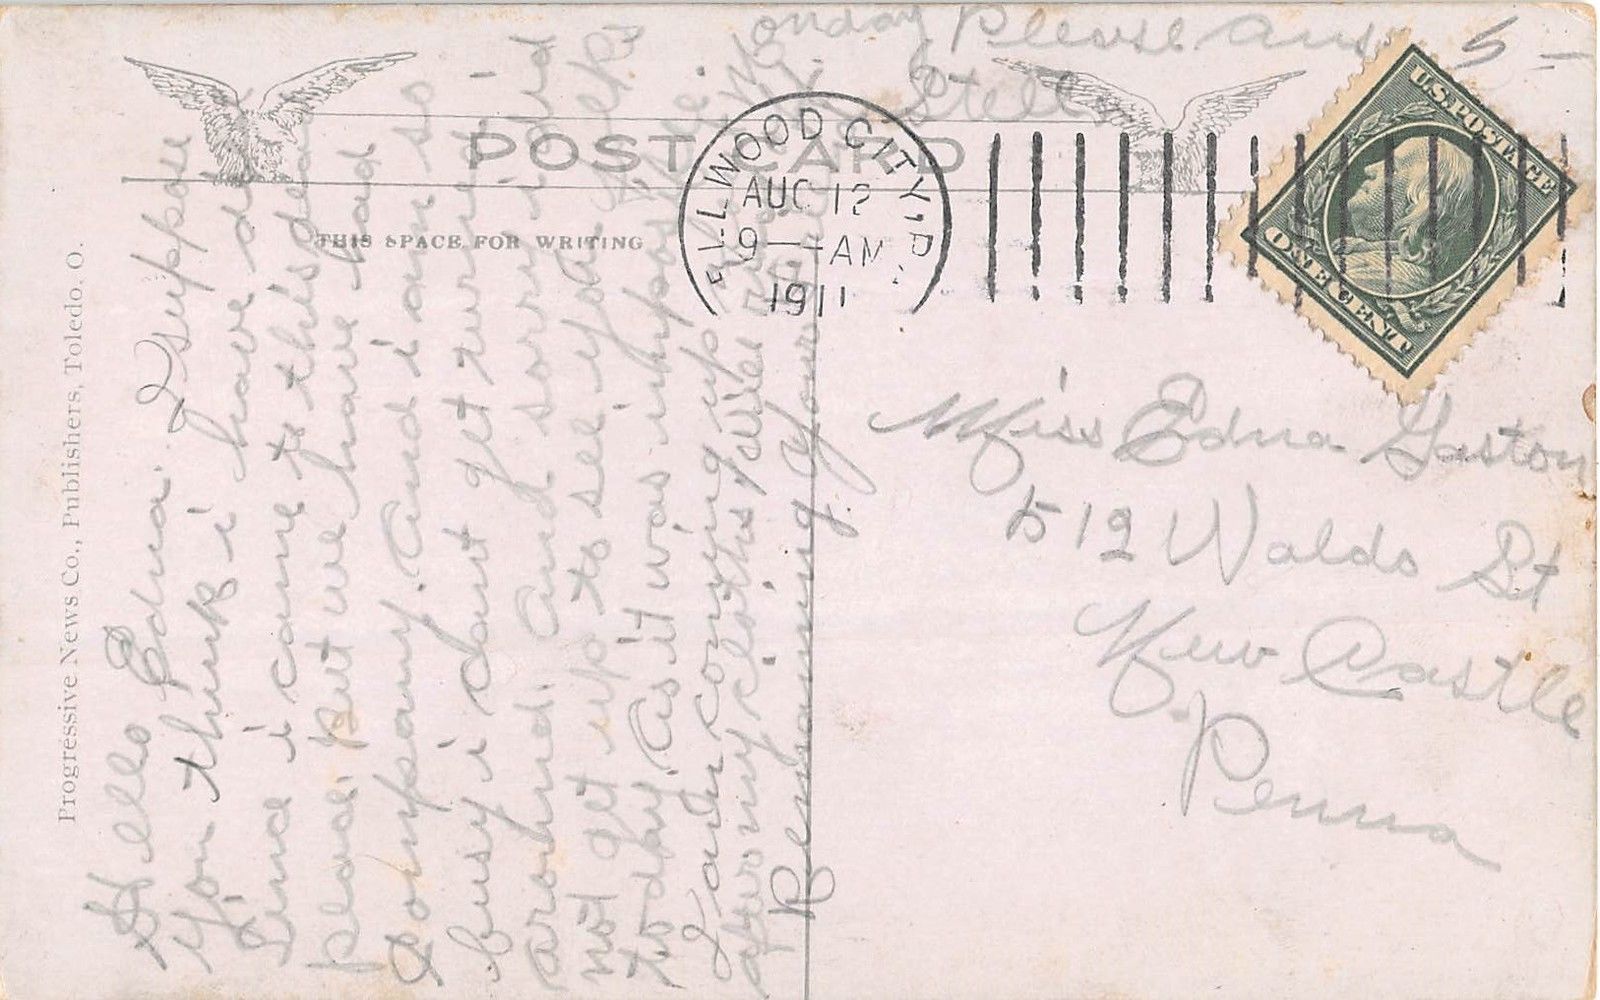 POST CARD
THIS SPACE FOR WRITING
Progressive News Co., Publishers, Toledo. O.
ELLWOOD CITY, P
AUG 12
9—AM
1911
U.S. POSTAGE
ONE CENT
Hello Edna. I suppose
you think i have died
since i came to this dead
place, but we have had
Company. And i am so
busy i dont get turn'd
around. And sorry i did
not get up to see you folks
to day. As it was impossible.
I am coming up
after my cloths
Monday Please ans
Remaining Your
Stella
Miss Edna Gaston
512 Waldo St
New Castle
Penna